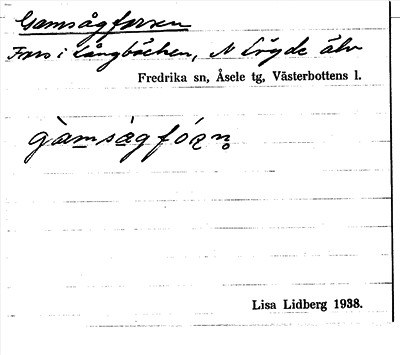 Gamsågforsen
Fors i Långbäcken, N Lögde älv
Fredrika sn, Åsele tg, Västerbottens l.
gàmságfórn̥
Lisa Lidberg 1938.